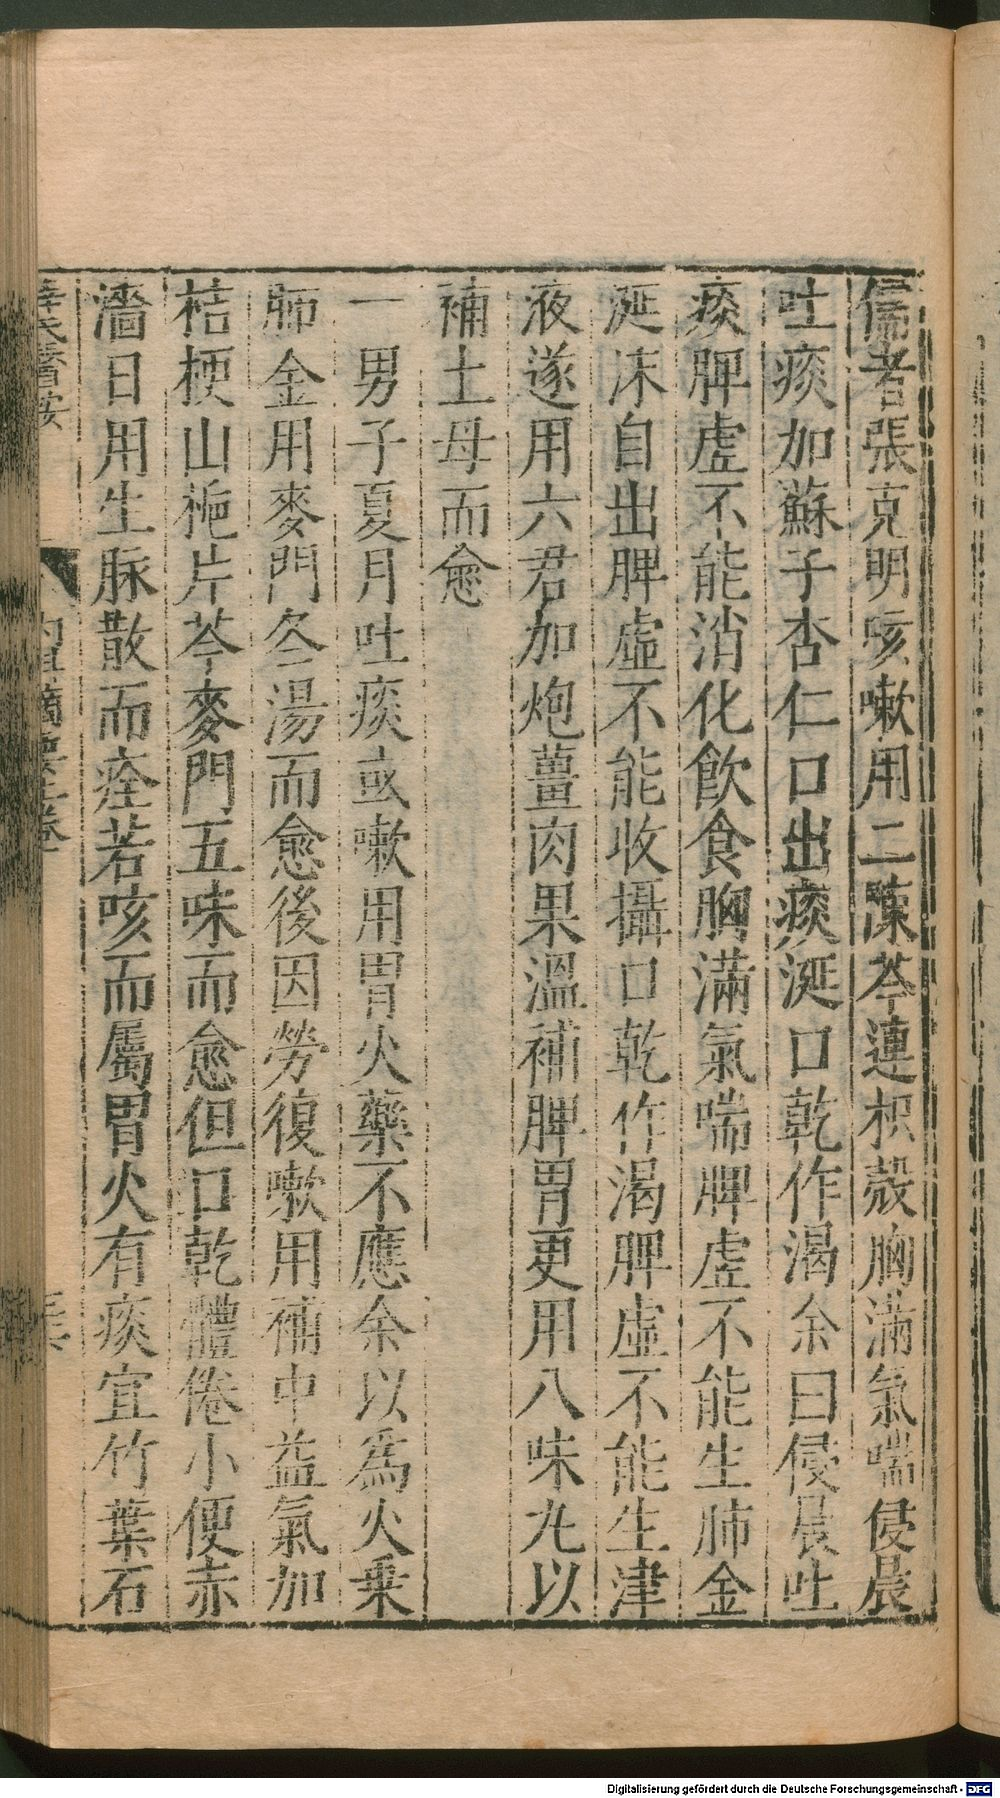 儒者張克明咳嗽用二陳芩連枳殼胸滿氣喘侵晨
吐痰加蘇子杏仁口出痰涎口乾作渴余曰侵晨吐
痰脾虛不能消化飲食胸滿氣喘脾虛不能生肺金
涎沫自出脾虛不能收攝口乾作渴脾虛不能生津
液遂用六君加炮薑肉果溫補脾胃更用八味丸以
補土母而愈
一男子夏月吐痰或嗽用胃火藥不應余以為火乗
肺金用麥門冬湯而愈後因勞復嗽用補中益氣加
桔梗山梔片芩麥門五味而愈但口乾體倦小便赤
濇日用生脉散而痊若咳而屬胃火有痰宜竹葉石
薛氏醫按
內科摘要上卷
Digitalisierung gefördert durch die Deutsche Forschungsgemeinschaft - DFG